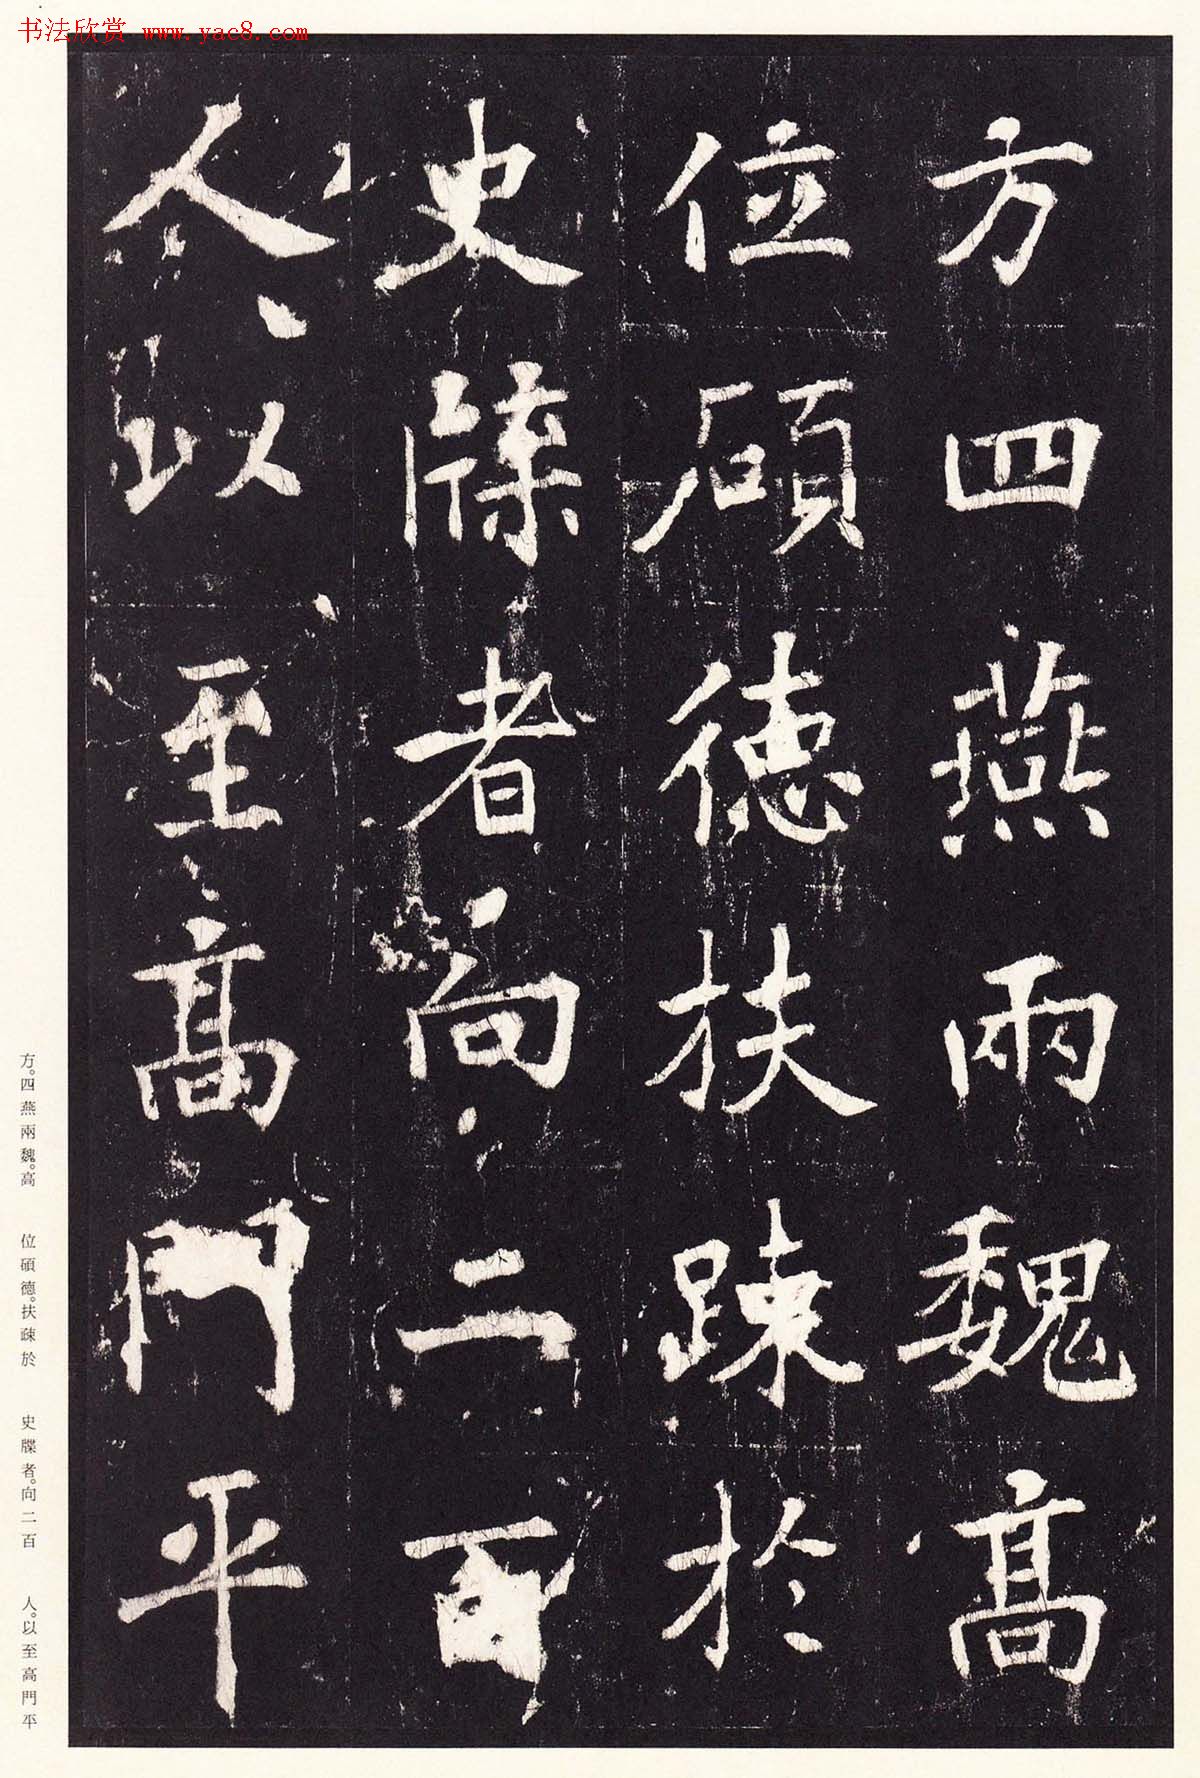 书法欣赏 www.yac8.com
方四燕兩魏高
位碩德扶疎於
史牒者向二百
人以至高門平
方。四燕兩魏。高 位碩德。扶疎於 史牒者。向二百 人。以至高門平